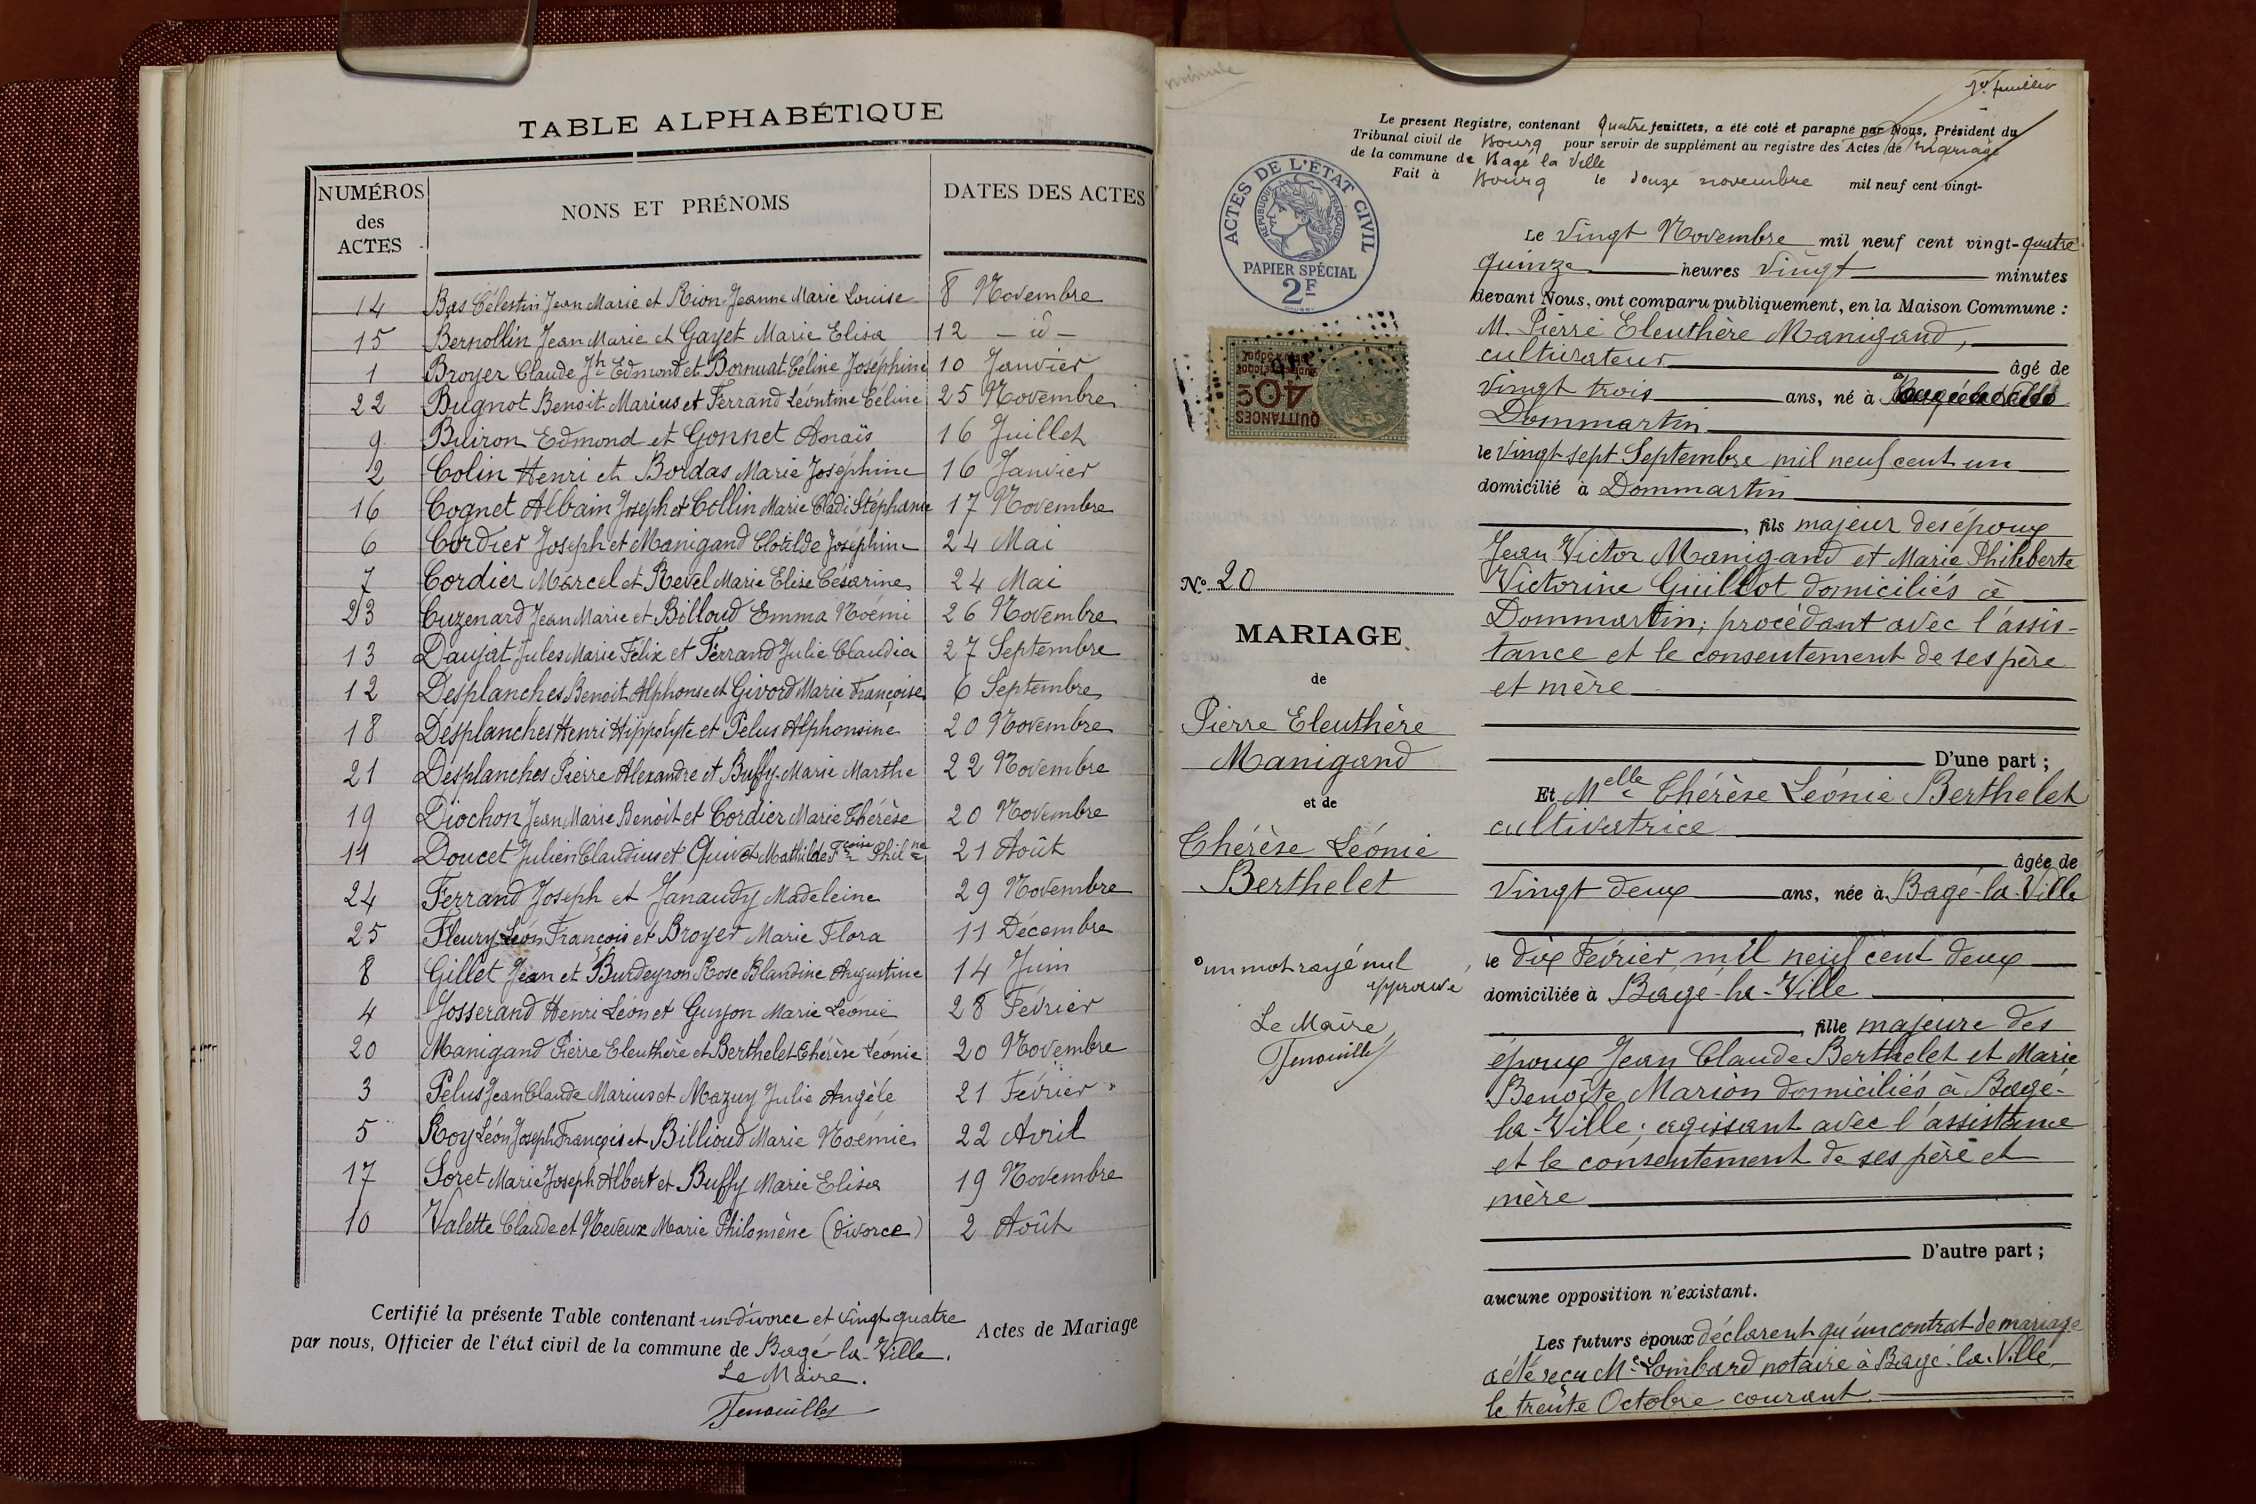 TABLE ALPHABÉTIQUE
NUMÉROS des ACTES
NONS ET PRÉNOMS
DATES DES ACTES
14 Bas Célestin Jean Marie et Rion Jeanne Marie Louise 8 Novembre
15 Bernollin Jean Marie et Gayet Marie Elisa 12 - id -
1 Broyer Claude Jh Edmond et Bornuat Céline Joséphine 10 Janvier
22 Bugnot Benoit Marius et Ferrand Léontine Céline 25 Novembre
9 Buiron Edmond et Gonnet Anaïs 16 Juillet
2 Colin Henri et Bordas Marie Joséphine 16 Janvier
16 Cognet Albain Joseph et Collin Marie Stéphanie 17 Novembre
6 Cordier Joseph et Manigand Clotilde Joséphine 24 Mai
7 Cordier Marcel et Revel Marie Elise Césarine 24 Mai
23 Cuzenard Jean Marie et Billoud Emma Noémi 26 Novembre
13 Daujat Jules Marie Félix et Ferrand Julie Claudia 27 Septembre
12 Desplanches Benoit Alphonse et Givord Marie Françoise 6 Septembre
18 Desplanches Henri Hippolyte et Pelus Alphonsine 20 Novembre
21 Desplanches Pierre Alexandre et Buffy Marie Marthe 22 Novembre
19 Diochon Jean Marie Benoît et Cordier Marie Thérèse 20 Novembre
11 Doucet Julien Claudius et Quivet Mathilde Fçoise Philne 21 Août
24 Ferrand Joseph et Janaudy Madeleine 29 Novembre
25 Fleury Léon François et Broyer Marie Flora 11 Décembre
8 Gillet Jean et Burdeyron Rose Blandine Augustine 14 Juin
4 Josserand Henri Léon et Guyon Marie Léonie 28 Février
20 Manigand Pierre Eleuthère et Berthelet Thérèse Léonie 20 Novembre
3 Pelus Jean Claude Marius et Mazuy Julie Angèle 21 Février
5 Roy Léon Joseph François et Billioud Marie Noémie 22 Avril
17 Soret Marie Joseph Albert et Buffy Marie Elisa 19 Novembre
10 Valette Claude et Neveux Marie Philomène (divorce) 2 Août
Certifié la présente Table contenant un divorce et vingt quatre Actes de Mariage
par nous, Officier de l'état civil de la commune de Bagé-la-Ville.
Le Maire.
Fenouillet
1er feuillet
Le present Registre, contenant quatre feuillets, a été coté et paraphé par Nous, Président du
Tribunal civil de Bourg pour servir de supplément au registre des Actes de mariage
de la commune de Bagé la Ville
Fait à Bourg le douze novembre mil neuf cent vingt-
ACTES DE L'ÉTAT CIVIL
RÉPUBLIQUE FRANÇAISE
PAPIER SPÉCIAL
2F
QUITTANCES
40c
Le vingt Novembre mil neuf cent vingt-quatre
quinze heures vingt minutes
devant Nous, ont comparu publiquement, en la Maison Commune :
M. Pierre Eleuthère Manigand,
cultivateur âgé de
vingt trois ans, né à
Dommartin
le vingt sept Septembre mil neuf cent un
domicilié à Dommartin
, fils majeur des époux
Jean Victor Manigand et Marie Philiberte
Victorine Guillot domiciliés à
Dommartin; procédant avec l'assis-
tance et le consentement de ses père
et mère
D'une part ;
Et Melle Thérèse Léonie Berthelet
cultivatrice
âgée de
vingt deux ans, née à Bagé-la-Ville
le dix Février mil neuf cent deux
domiciliée à Bagé-la-Ville
, fille majeure des
époux Jean Claude Berthelet et Marie
Benoîte Marion domiciliés à Bagé-
la-Ville; agissant avec l'assistance
et le consentement de ses père et
mère
D'autre part ;
aucune opposition n'existant.
Les futurs époux déclarent qu'un contrat de mariage
a été reçu Me Lombard notaire à Bagé-la-Ville
le trente Octobre courant
No 20
MARIAGE
de
Pierre Eleuthère
Manigand
et de
Thérèse Léonie
Berthelet
un mot rayé nul
approuvé
Le Maire
Fenouillet